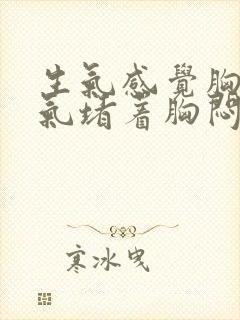 生氣感覺胸
氣堵着胸悶
寒冰曳